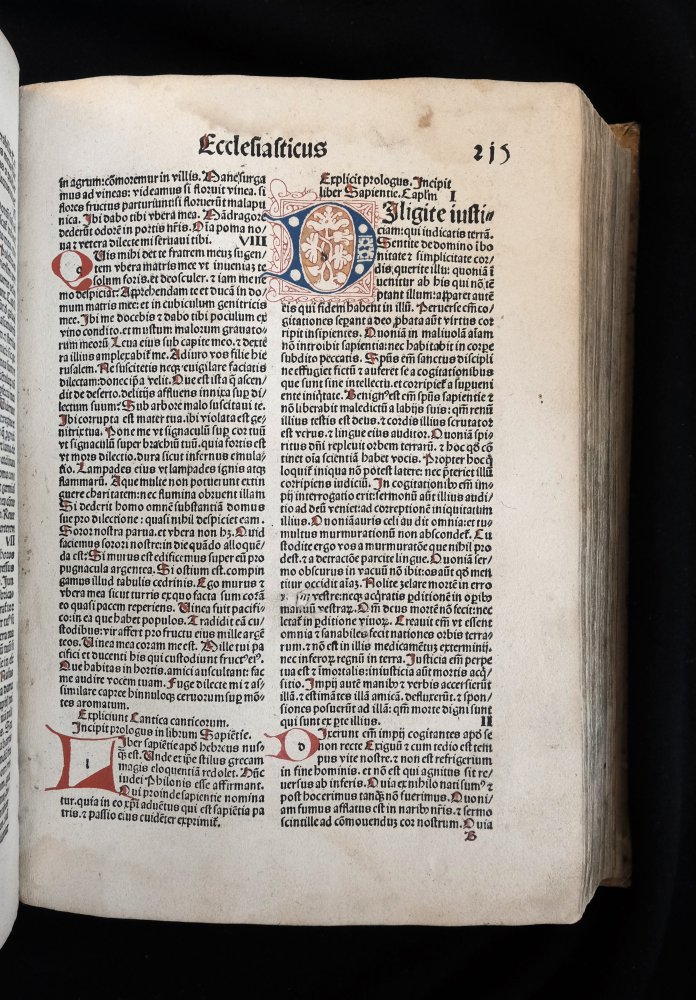 Ecclesiasticus
215
in agrum: cōmoremur in villis. Mane surga
mus ad vineas: videamus si floruit vinea. si
flores fructus parturiunt: si floruerūt malapu
nica. Ibi dabo tibi vbera mea. Mādragore
dederūt odorē in portis nr̄is. Oīa poma no-
ua ⁊ vetera dilecte mi seruaui tibi. VIII
Quis mihi det te fratrem meuꝫ sugen-
tem vbera matris mee: vt inueniā te
solum foris. et deosculer. ⁊ iam me ne
mo despiciat: Apprehendam te et ducā in do-
mum matris mee: et in cubiculum genitricis
mee. Ibi me docebis ⁊ dabo tibi poculum ex
vino condito. et mustum: malorum granato-
rum meorū. Leua eius sub capite meo. ⁊ dexte
ra illius amplexabit̄ me. Adiuro vos filie hie
rusalem. Ne suscitetis neqꝫ euigilare faciatis
dilectam: donec ip̄a velit. Que est ista q̄ ascen/
dit de deserto. delitijs affluens innixa suꝑ di/
lectum suum: Sub arbore malo suscitaui te.
Ibi corrupta est mater tua. ibi violata est ge-
nitrix tua. Pone me vt signaculū suꝑ cor tuū
vt signaculū super brachiū tuū. quia fortis est
vt mors dilectio. dura sicut infernus emula-
tio. Lampades eius vt lampades ignis atqꝫ
flammarū. Aque multe non potuerunt extin
guere charitatem: nec flumina obruent illam
Si dederit homo omnē substantiā domus
sue pro dilectione: quasi nihil despiciet eam.
Soror nostra parua. et vbera non hꝫ. Quid
faciemus sorori nostre: in die quādo alloquē/
da est: Si murus est edificemus super eū pro
pugnacula argentea. Si ostium est. compin
gamus illud tabulis cedrinis. Ego murus ⁊
vbera mea sicut turris ex quo facta sum corā
eo quasi pacem reperiens. Uinea fuit pacifi-
co: in ea que habet populos. Tradidit eā cu-
stodibus: vir affert pro fructu eius mille argē
teos. Uinea mea coram me est. Mille tui pa
cifici et ducenti his qui custodiunt fructꝰ eiꝰ.
Que habitas in hortis. amici auscultant: fac
me audire vocem tuam. Fuge dilecte mi ⁊ as/
similare capree hinnuloqꝫ ceruorum suꝑ mō-
tes aromatum.
Expliciunt Cantica canticorum.
Incipit prologus in librum Sapiētie.
Liber sapiētie apd̄ hebreos nus/
qꝫ est. Unde et ip̄e stilus grecam
magis eloquentiā redolet. Hūc
iudei Philonis esse affirmant.
Qui proinde sapientie nomina
tur. quia in eo xp̄i aduētus qui est sapiētia pa
tris. ⁊ passio eius euidēter exprimit̄.
Explicit prologus. Incipit
liber Sapientie. Caplm̄ I
Diligite iusti/
ciam: qui iudicatis terrā.
Sentite de domino ī bo
nitate: ⁊ simplicitate cor/
dis. querite illū: quoniā ī
uenitur ab his qui nō tē
ptant illum: apparet autē
eis qui fidem habent in illū. Peruerse em̄ co/
gitationes seꝑant a deo ꝓbata aūt virtus cor
ripit insipientes. Quoniā in maliuolā aīam
nōn introibit sapientia: nec habitabit in corpe
subdito peccatis. Spūs em̄ sanctus discipli
ne effugiet fictū: ⁊ auferet se a cogitationibus
que sunt sine intellectu. et corripiet̄ a suꝑueni
ente iniq̄tate. Benignꝰ est em̄ spūs sapientie ⁊
nō liberabit maledictū a labijs suis: qm̄ renū
illius testis est deus. ⁊ cordis illius scrutator
est verus. ⁊ lingue eius auditor. Quoniā spi-
ritus dn̄i repleuit orbem terrarū. ⁊ hoc qd̄ cō
tinet oīa scientiā habet vocis. Propter hoc q̄
loquit̄ iniqua nō potest latere: nec p̄teriet illū
corripiens iudiciū. In cogitationibꝰ em̄ im/
pij interrogatio erit: sermonū aūt illius audi/
tio ad deū veniet: ad correptionē iniquitatum
illius. Quoniā auris celi audit omnia: et tu-
multus murmurationū non abscondet̄. Cu
stodite ergo vos a murmuratōe que nihil pro
dest. ⁊ a detractōe parcite lingue. Quoniā ser/
mo obscurus in vacuū nō ibit: os aūt qd̄ men
titur occidit aīaꝫ. Nolite zelare mortē in erro
vestre: neqꝫ acq̄ratis ꝑditionē in oꝑibꝰ
manuū vestraꝝ. Qm̄ deus mortē nō fecit: nec
letat̄ in ꝑditione viuoꝝ. Creauit em̄ vt essent
omnia ⁊ sanabiles fecit nationes orbis terra/
rum. ⁊ nō est in illis medicamētū exterminij.
nec inferoꝝ regnū in terra. Iusticia em̄ perpe
tua est ⁊ īmortalis: iniusticia aūt mortis acq̄/
sitio. Impij autē manibꝰ ⁊ verbis accersierūt
illā. ⁊ estimātes illā amicā. defluxerūt. ⁊ spon/
siones posuerūt ad illā: qm̄ morte digni sunt
qui sunt ex ꝑte illius. II
Dixerunt em̄ impij cogitantes apd̄ se
non recte Exiguū ⁊ cum tedio est tem
pus vite nostre. ⁊ non est refrigerium
in fine hominis. et nō est qui agnitus sit re/
uersus ab inferis. Quia ex nihilo nati sumꝰ ⁊
post hoc erimus tanqꝫ nō fuerimus. Quoni/
am fumus afflatus est in naribꝰ nr̄is. ⁊ sermo
scintille ad cōmouenduꝫ cor nostrum. Quia
B